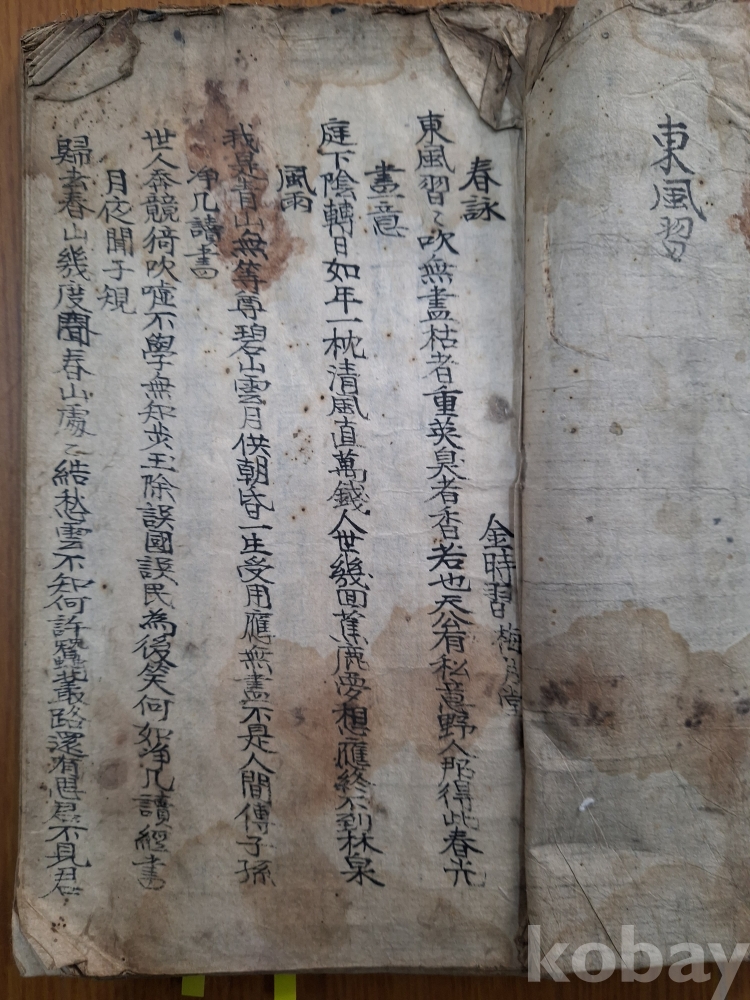 東風習
春詠
金時習 梅月堂
東風習〻吹無盡枯者重英臭者香若也天公有私意野人那得此春光
晝意
庭下陰轉日如年一枕清風直萬錢人世幾回蕉鹿夢想應終不到林泉
風雨
我是青山無等尊碧山雲月供朝昏一生受用應無盡不是人間傳子孫
净几讀書
世人奔競猗吹噓不學無知步玉除誤國誤民為後笑何如净几讀經書
月夜聞子規
歸去春山幾度聞春山處〻結愁雲不知何許蠶叢路還有思君不見君
kobay